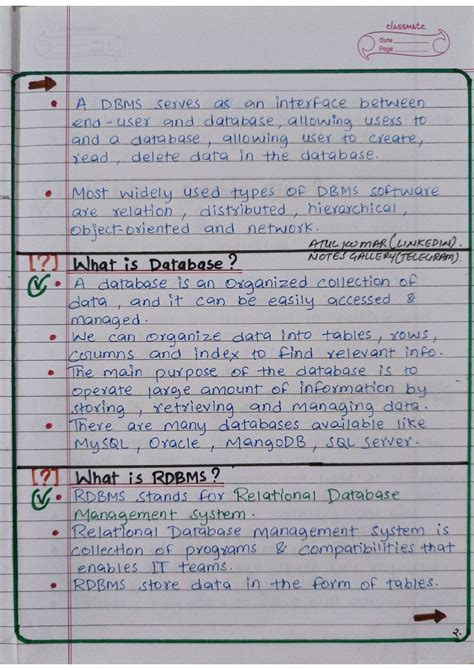 classmate
Date
Page
• A DBMS serves as an interface between
end-user and database, allowing users to
and a database, allowing user to create,
read, delete data in the database.
• Most widely used types of DBMS software
are relation, distributed, hierarchical,
object-oriented and network.
ATUL KUMAR (LINKEDIN)
NOTES GALLERY (TELEGRAM)
[?] What is Database?
• A database is an organized collection of
data, and it can be easily accessed &
managed.
• We can organize data into tables, rows,
columns and index to find relevant info.
• The main purpose of the database is to
operate large amount of information by
storing, retrieving and managing data.
• There are many databases available like
MySQL, Oracle, MangoDB, SQL server.
[?] What is RDBMS?
• RDBMS stands for Relational Database
Management system.
• Relational Database management system is
collection of programs & compatibilities that
enables IT teams.
• RDBMS store data in the form of tables.
2.